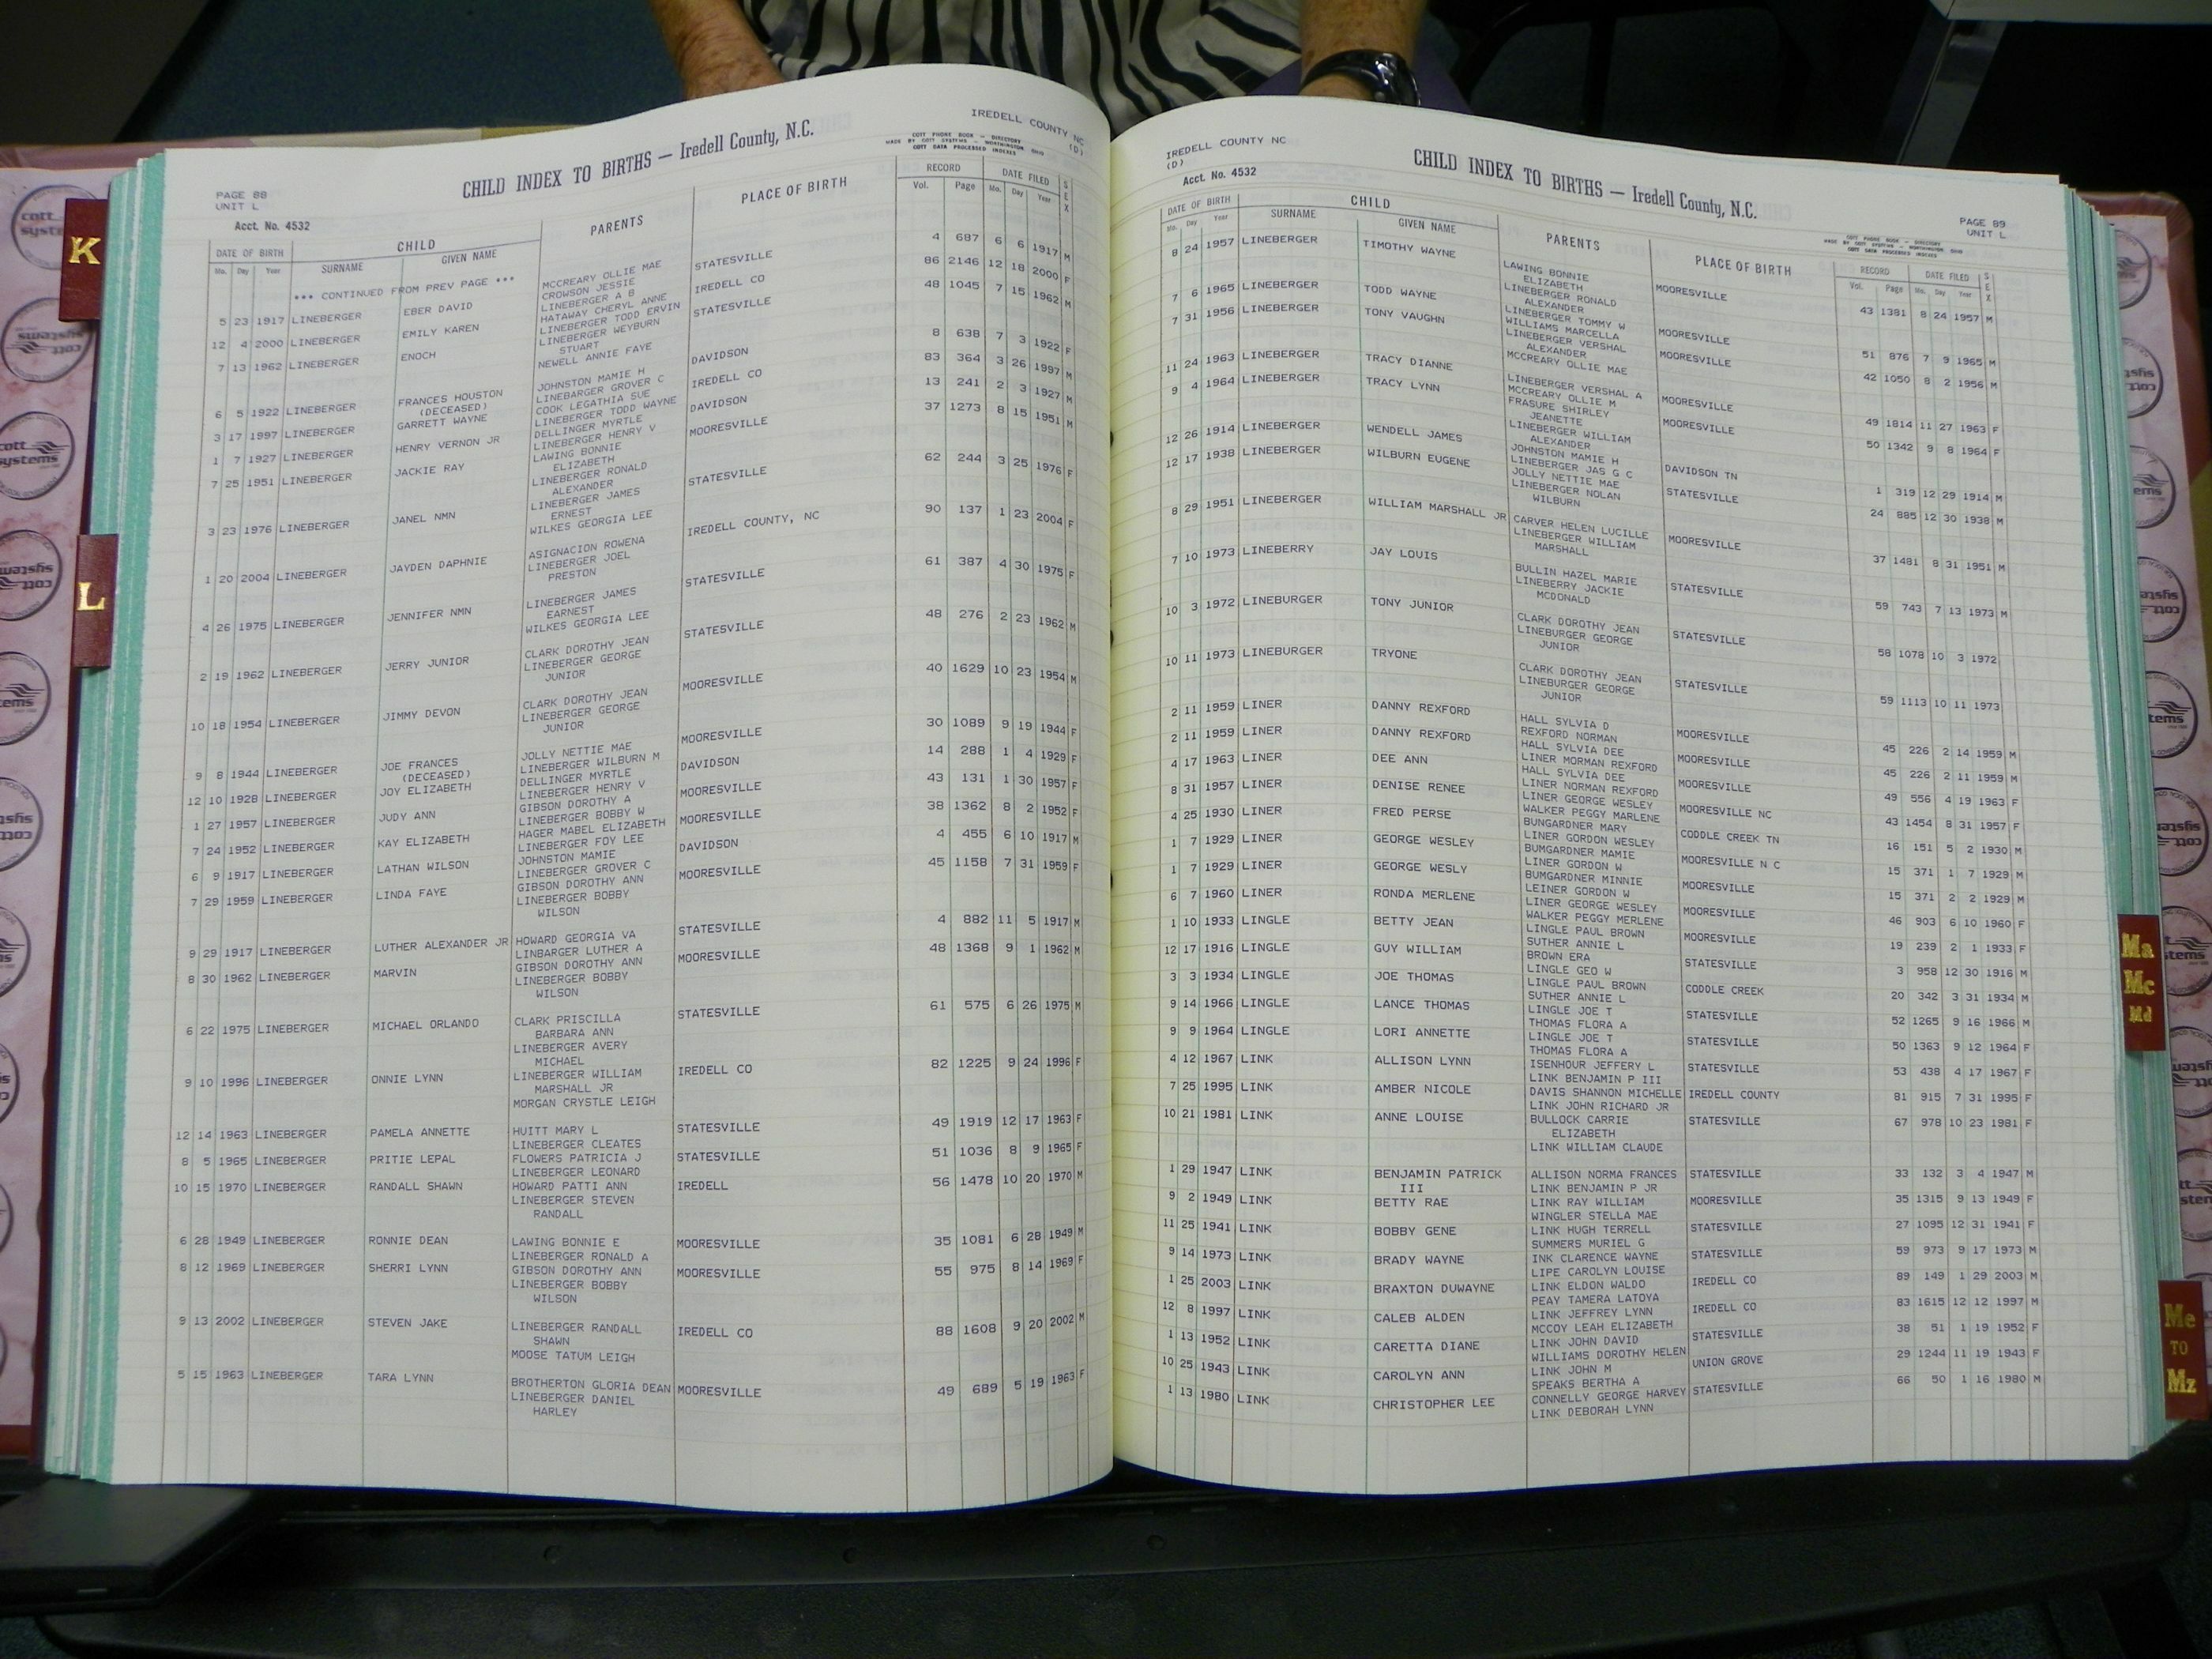 IREDELL COUNTY NC
(D)
CHILD INDEX TO BIRTHS — Iredell County, N.C.
COTT PHONE BOOK — DIRECTORY
MADE BY COTT SYSTEMS — WORTHINGTON, OHIO
COTT DATA PROCESSED INDEXES
PAGE 88
UNIT L
Acct. No. 4532
DATE OF BIRTH CHILD PARENTS PLACE OF BIRTH RECORD DATE FILED SEX
Mo. Day Year SURNAME GIVEN NAME Vol. Page Mo. Day Year
*** CONTINUED FROM PREV PAGE ***
5 23 1917 LINEBERGER EBER DAVID MCCREARY OLLIE MAE STATESVILLE 4 687 6 6 1917 M
CROWSON JESSIE
LINEBERGER A B
12 4 2000 LINEBERGER EMILY KAREN HATAWAY CHERYL ANNE IREDELL CO 86 2146 12 18 2000 F
LINEBERGER TODD ERVIN
7 13 1962 LINEBERGER ENOCH LINEBERGER WEYBURN STATESVILLE 48 1045 7 15 1962 M
STUART
NEWELL ANNIE FAYE
6 5 1922 LINEBERGER FRANCES HOUSTON JOHNSTON MAMIE H DAVIDSON 8 638 7 3 1922 F
(DECEASED) LINEBARGER GROVER C
3 17 1997 LINEBERGER GARRETT WAYNE COOK LEGATHIA SUE IREDELL CO 83 364 3 26 1997 M
LINEBERGER TODD WAYNE
1 7 1927 LINEBERGER HENRY VERNON JR DELLINGER MYRTLE DAVIDSON 13 241 2 3 1927 M
LINEBERGER HENRY V
7 25 1951 LINEBERGER JACKIE RAY LAWING BONNIE MOORESVILLE 37 1273 8 15 1951 M
ELIZABETH
LINEBERGER RONALD
ALEXANDER
3 23 1976 LINEBERGER JANEL NMN LINEBERGER JAMES STATESVILLE 62 244 3 25 1976 F
ERNEST
WILKES GEORGIA LEE
1 20 2004 LINEBERGER JAYDEN DAPHNIE ASIGNACION ROWENA IREDELL COUNTY, NC 90 137 1 23 2004 F
LINEBERGER JOEL
PRESTON
4 26 1975 LINEBERGER JENNIFER NMN LINEBERGER JAMES STATESVILLE 61 387 4 30 1975 F
EARNEST
WILKES GEORGIA LEE
2 19 1962 LINEBERGER JERRY JUNIOR CLARK DOROTHY JEAN STATESVILLE 48 276 2 23 1962 M
LINEBERGER GEORGE
JUNIOR
10 18 1954 LINEBERGER JIMMY DEVON CLARK DOROTHY JEAN MOORESVILLE 40 1629 10 23 1954 M
LINEBERGER GEORGE
JUNIOR
9 8 1944 LINEBERGER JOE FRANCES JOLLY NETTIE MAE MOORESVILLE 30 1089 9 19 1944 F
(DECEASED) LINEBERGER WILBURN M
12 10 1928 LINEBERGER JOY ELIZABETH DELLINGER MYRTLE DAVIDSON 14 288 1 4 1929 F
LINEBERGER HENRY V
1 27 1957 LINEBERGER JUDY ANN GIBSON DOROTHY A MOORESVILLE 43 131 1 30 1957 F
LINEBERGER BOBBY W
7 24 1952 LINEBERGER KAY ELIZABETH HAGER MABEL ELIZABETH MOORESVILLE 38 1362 8 2 1952 F
LINEBERGER FOY LEE
6 9 1917 LINEBERGER LATHAN WILSON JOHNSTON MAMIE DAVIDSON 4 455 6 10 1917 M
LINEBERGER GROVER C
7 29 1959 LINEBERGER LINDA FAYE GIBSON DOROTHY ANN MOORESVILLE 45 1158 7 31 1959 F
LINEBERGER BOBBY
WILSON
9 29 1917 LINEBERGER LUTHER ALEXANDER JR HOWARD GEORGIA VA STATESVILLE 4 882 11 5 1917 M
LINBARGER LUTHER A
8 30 1962 LINEBERGER MARVIN GIBSON DOROTHY ANN MOORESVILLE 48 1368 9 1 1962 M
LINEBERGER BOBBY
WILSON
6 22 1975 LINEBERGER MICHAEL ORLANDO CLARK PRISCILLA STATESVILLE 61 575 6 26 1975 M
BARBARA ANN
LINEBERGER AVERY
MICHAEL
9 10 1996 LINEBERGER ONNIE LYNN LINEBERGER WILLIAM IREDELL CO 82 1225 9 24 1996 F
MARSHALL JR
MORGAN CRYSTLE LEIGH
12 14 1963 LINEBERGER PAMELA ANNETTE HUITT MARY L STATESVILLE 49 1919 12 17 1963 F
LINEBERGER CLEATES
8 5 1965 LINEBERGER PRITIE LEPAL FLOWERS PATRICIA J STATESVILLE 51 1036 8 9 1965 F
LINEBERGER LEONARD
10 15 1970 LINEBERGER RANDALL SHAWN HOWARD PATTI ANN IREDELL 56 1478 10 20 1970 M
LINEBERGER STEVEN
RANDALL
6 28 1949 LINEBERGER RONNIE DEAN LAWING BONNIE E MOORESVILLE 35 1081 6 28 1949 M
LINEBERGER RONALD A
8 12 1969 LINEBERGER SHERRI LYNN GIBSON DOROTHY ANN MOORESVILLE 55 975 8 14 1969 F
LINEBERGER BOBBY
WILSON
9 13 2002 LINEBERGER STEVEN JAKE LINEBERGER RANDALL IREDELL CO 88 1608 9 20 2002 M
SHAWN
MOOSE TATUM LEIGH
5 15 1963 LINEBERGER TARA LYNN BROTHERTON GLORIA DEAN MOORESVILLE 49 689 5 19 1963 F
LINEBERGER DANIEL
HARLEY
IREDELL COUNTY NC
(D)
Acct. No. 4532
CHILD INDEX TO BIRTHS — Iredell County, N.C.
PAGE 89
UNIT L
COTT PHONE BOOK — DIRECTORY
MADE BY COTT SYSTEMS — WORTHINGTON, OHIO
COTT DATA PROCESSED INDEXES
DATE OF BIRTH CHILD PARENTS PLACE OF BIRTH RECORD DATE FILED SEX
Mo. Day Year SURNAME GIVEN NAME Vol. Page Mo. Day Year
8 24 1957 LINEBERGER TIMOTHY WAYNE LAWING BONNIE MOORESVILLE 43 1381 8 24 1957 M
ELIZABETH
LINEBERGER RONALD
ALEXANDER
7 6 1965 LINEBERGER TODD WAYNE LINEBERGER TOMMY W MOORESVILLE 51 876 7 9 1965 M
WILLIAMS MARCELLA
7 31 1956 LINEBERGER TONY VAUGHN LINEBERGER VERSHAL MOORESVILLE 42 1050 8 2 1956 M
ALEXANDER
MCCREARY OLLIE MAE
11 24 1963 LINEBERGER TRACY DIANNE LINEBERGER VERSHAL A MOORESVILLE 49 1814 11 27 1963 F
MCCREARY OLLIE M
9 4 1964 LINEBERGER TRACY LYNN FRASURE SHIRLEY MOORESVILLE 50 1342 9 8 1964 F
JEANETTE
LINEBERGER WILLIAM
ALEXANDER
12 26 1914 LINEBERGER WENDELL JAMES JOHNSTON MAMIE H DAVIDSON TN 1 319 12 29 1914 M
LINEBERGER JAS G C
12 17 1938 LINEBERGER WILBURN EUGENE JOLLY NETTIE MAE STATESVILLE 24 885 12 30 1938 M
LINEBERGER NOLAN
WILBURN
8 29 1951 LINEBERGER WILLIAM MARSHALL JR CARVER HELEN LUCILLE MOORESVILLE 37 1481 8 31 1951 M
LINEBERGER WILLIAM
MARSHALL
7 10 1973 LINEBERRY JAY LOUIS BULLIN HAZEL MARIE STATESVILLE 59 743 7 13 1973 M
LINEBERRY JACKIE
MCDONALD
10 3 1972 LINEBURGER TONY JUNIOR CLARK DOROTHY JEAN STATESVILLE 58 1078 10 3 1972
LINEBURGER GEORGE
JUNIOR
10 11 1973 LINEBURGER TRYONE CLARK DOROTHY JEAN STATESVILLE 59 1113 10 11 1973
LINEBURGER GEORGE
JUNIOR
2 11 1959 LINER DANNY REXFORD HALL SYLVIA D MOORESVILLE 45 226 2 14 1959 M
REXFORD NORMAN
2 11 1959 LINER DANNY REXFORD HALL SYLVIA DEE MOORESVILLE 45 226 2 11 1959 M
LINER MORMAN REXFORD
4 17 1963 LINER DEE ANN HALL SYLVIA DEE MOORESVILLE 49 556 4 19 1963 F
LINER NORMAN REXFORD
8 31 1957 LINER DENISE RENEE LINER GEORGE WESLEY MOORESVILLE NC 43 1454 8 31 1957 F
WALKER PEGGY MARLENE
4 25 1930 LINER FRED PERSE BUNGARDNER MARY CODDLE CREEK TN 16 151 5 2 1930 M
LINER GORDON WESLEY
1 7 1929 LINER GEORGE WESLEY BUMGARDNER MAMIE MOORESVILLE N C 15 371 1 7 1929 M
LINER GORDON W
1 7 1929 LINER GEORGE WESLY BUMGARDNER MINNIE MOORESVILLE 15 371 2 2 1929 M
LEINER GORDON W
6 7 1960 LINER RONDA MERLENE LINER GEORGE WESLEY MOORESVILLE 46 903 6 10 1960 F
WALKER PEGGY MERLENE
1 10 1933 LINGLE BETTY JEAN LINGLE PAUL BROWN MOORESVILLE 19 239 2 1 1933 F
SUTHER ANNIE L
12 17 1916 LINGLE GUY WILLIAM BROWN ERA STATESVILLE 3 958 12 30 1916 M
LINGLE GEO W
3 3 1934 LINGLE JOE THOMAS LINGLE PAUL BROWN CODDLE CREEK 20 342 3 31 1934 M
SUTHER ANNIE L
9 14 1966 LINGLE LANCE THOMAS LINGLE JOE T STATESVILLE 52 1265 9 16 1966 M
THOMAS FLORA A
9 9 1964 LINGLE LORI ANNETTE LINGLE JOE T STATESVILLE 50 1363 9 12 1964 F
THOMAS FLORA A
4 12 1967 LINK ALLISON LYNN ISENHOUR JEFFERY L STATESVILLE 53 438 4 17 1967 F
LINK BENJAMIN P III
7 25 1995 LINK AMBER NICOLE DAVIS SHANNON MICHELLE IREDELL COUNTY 81 915 7 31 1995 F
LINK JOHN RICHARD JR
10 21 1981 LINK ANNE LOUISE BULLOCK CARRIE STATESVILLE 67 978 10 23 1981 F
ELIZABETH
LINK WILLIAM CLAUDE
1 29 1947 LINK BENJAMIN PATRICK ALLISON NORMA FRANCES STATESVILLE 33 132 3 4 1947 M
III LINK BENJAMIN P JR
9 2 1949 LINK BETTY RAE LINK RAY WILLIAM MOORESVILLE 35 1315 9 13 1949 F
WINGLER STELLA MAE
11 25 1941 LINK BOBBY GENE LINK HUGH TERRELL STATESVILLE 27 1095 12 31 1941 F
SUMMERS MURIEL G
9 14 1973 LINK BRADY WAYNE INK CLARENCE WAYNE STATESVILLE 59 973 9 17 1973 M
LIPE CAROLYN LOUISE
1 25 2003 LINK BRAXTON DUWAYNE LINK ELDON WALDO IREDELL CO 89 149 1 29 2003 M
PEAY TAMERA LATOYA
12 8 1997 LINK CALEB ALDEN LINK JEFFREY LYNN IREDELL CO 83 1615 12 12 1997 M
MCCOY LEAH ELIZABETH
1 13 1952 LINK CARETTA DIANE LINK JOHN DAVID STATESVILLE 38 51 1 19 1952 F
WILLIAMS DOROTHY HELEN
10 25 1943 LINK CAROLYN ANN LINK JOHN M UNION GROVE 29 1244 11 19 1943 F
SPEAKS BERTHA A
1 13 1980 LINK CHRISTOPHER LEE CONNELLY GEORGE HARVEY STATESVILLE 66 50 1 16 1980 M
LINK DEBORAH LYNN
K
L
Ma
Mc
Md
Me
TO
Mz
cott
systems